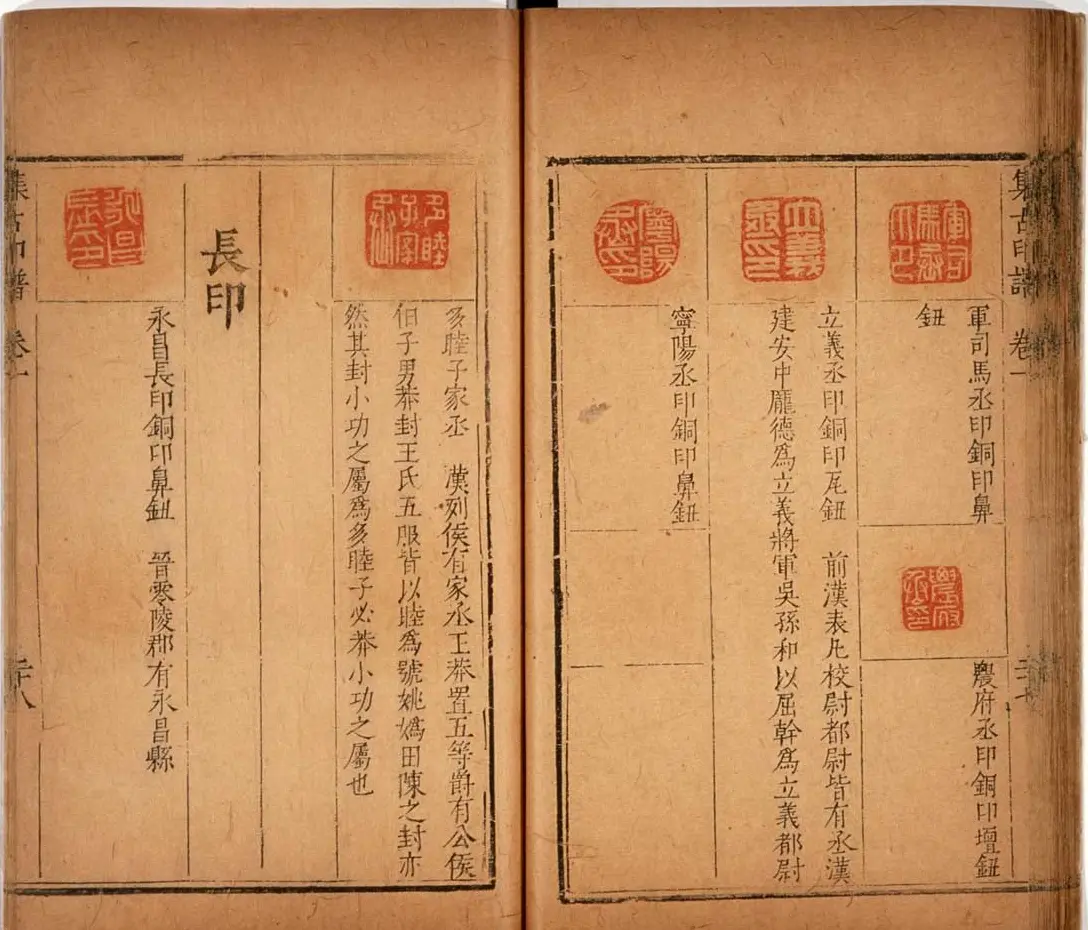 集古印譜 卷一
軍司馬丞印
軍司馬丞印銅印鼻
鈕
農府丞印
農府丞印銅印壇鈕
立義丞印銅印瓦鈕 前漢表凡校尉都尉皆有丞漢
建安中龐德爲立義將軍吳孫和以屈幹爲立義都尉
寧陽丞印
寧陽丞印銅印鼻鈕
多睦子家丞
多睦子家丞 漢列侯有家丞王莽置五等爵有公侯
伯子男莽封王氏五服皆以睦爲號姚媯田陳之封亦
然其封小功之屬爲多睦子必莽小功之屬也
長印
永昌長印
永昌長印銅印鼻鈕 晉零陵郡有永昌縣
集古印譜 卷一
二十八